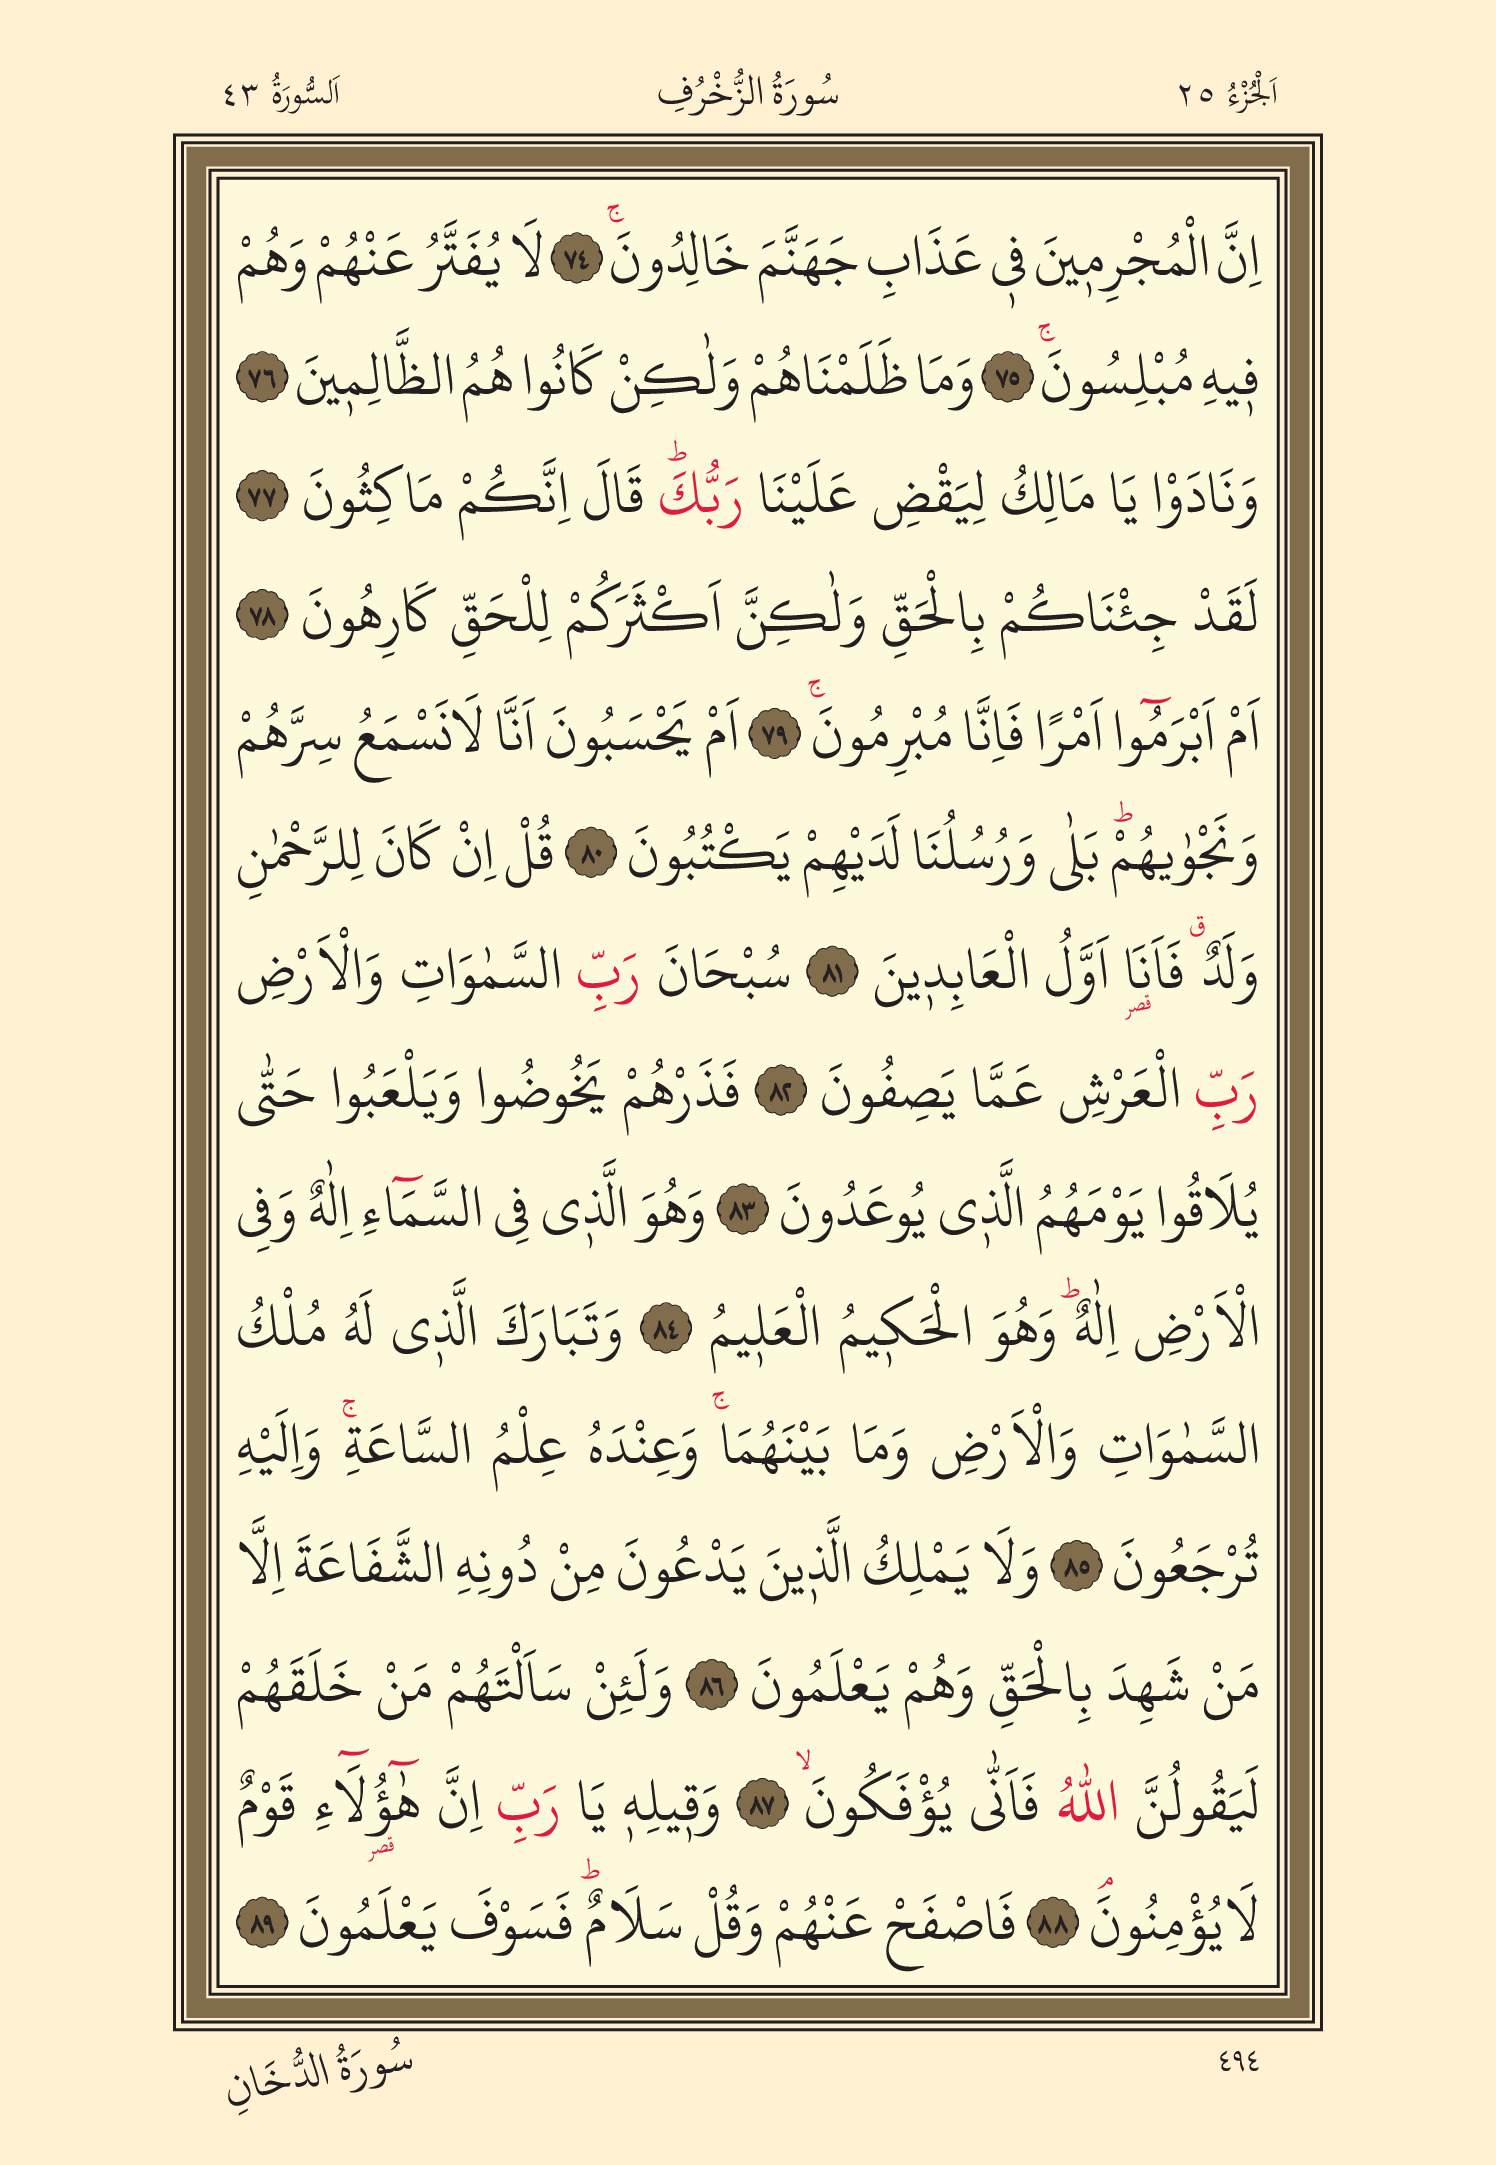 اَلْجُزْءُ ٢٥ سُورَةُ الزُّخْرُفِ اَلسُّورَةُ ٤٣
اِنَّ الْمُجْرِم۪ينَ ف۪ي عَذَابِ جَهَنَّمَ خَالِدُونَۚ ﴿٧٤﴾ لَا يُفَتَّرُ عَنْهُمْ وَهُمْ
ف۪يهِ مُبْلِسُونَۚ ﴿٧٥﴾ وَمَا ظَلَمْنَاهُمْ وَلٰكِنْ كَانُوا هُمُ الظَّالِم۪ينَ ﴿٧٦﴾
وَنَادَوْا يَا مَالِكُ لِيَقْضِ عَلَيْنَا رَبُّكَۜ قَالَ اِنَّكُمْ مَاكِثُونَ ﴿٧٧﴾
لَقَدْ جِئْنَاكُمْ بِالْحَقِّ وَلٰكِنَّ اَكْثَرَكُمْ لِلْحَقِّ كَارِهُونَ ﴿٧٨﴾
اَمْ اَبْرَمُٓوا اَمْرًا فَاِنَّا مُبْرِمُونَۚ ﴿٧٩﴾ اَمْ يَحْسَبُونَ اَنَّا لَا نَسْمَعُ سِرَّهُمْ
وَنَجْوٰيهُمْۜ بَلٰى وَرُسُلُنَا لَدَيْهِمْ يَكْتُبُونَ ﴿٨٠﴾ قُلْ اِنْ كَانَ لِلرَّحْمٰنِ
وَلَدٌۗ فَاَنَا۬ اَوَّلُ الْعَابِد۪ينَ ﴿٨١﴾ سُبْحَانَ رَبِّ السَّمٰوَاتِ وَالْاَرْضِ
رَبِّ الْعَرْشِ عَمَّا يَصِفُونَ ﴿٨٢﴾ فَذَرْهُمْ يَخُوضُوا وَيَلْعَبُوا حَتّٰى
يُلَاقُوا يَوْمَهُمُ الَّذ۪ى يُوعَدُونَ ﴿٨٣﴾ وَهُوَ الَّذ۪ى فِى السَّمَٓاءِ اِلٰهٌ وَفِى
الْاَرْضِ اِلٰهٌۜ وَهُوَ الْحَك۪يمُ الْعَل۪يمُ ﴿٨٤﴾ وَتَبَارَكَ الَّذ۪ى لَهُ مُلْكُ
السَّمٰوَاتِ وَالْاَرْضِ وَمَا بَيْنَهُمَاۚ وَعِنْدَهُ عِلْمُ السَّاعَةِۚ وَاِلَيْهِ
تُرْجَعُونَ ﴿٨٥﴾ وَلَا يَمْلِكُ الَّذ۪ينَ يَدْعُونَ مِنْ دُونِهِ الشَّفَاعَةَ اِلَّا
مَنْ شَهِدَ بِالْحَقِّ وَهُمْ يَعْلَمُونَ ﴿٨٦﴾ وَلَئِنْ سَاَلْتَهُمْ مَنْ خَلَقَهُمْ
لَيَقُولُنَّ اللّٰهُ فَاَنّٰى يُؤْفَكُونَۙ ﴿٨٧﴾ وَق۪يلِه۪ يَا رَبِّ اِنَّ هٰٓؤُ۬لَٓاءِ قَوْمٌ
لَا يُؤْمِنُونَۢ ﴿٨٨﴾ فَاصْفَحْ عَنْهُمْ وَقُلْ سَلَامٌۜ فَسَوْفَ يَعْلَمُونَ ﴿٨٩﴾
٤٩٤ سُورَةُ الدُّخَانِ